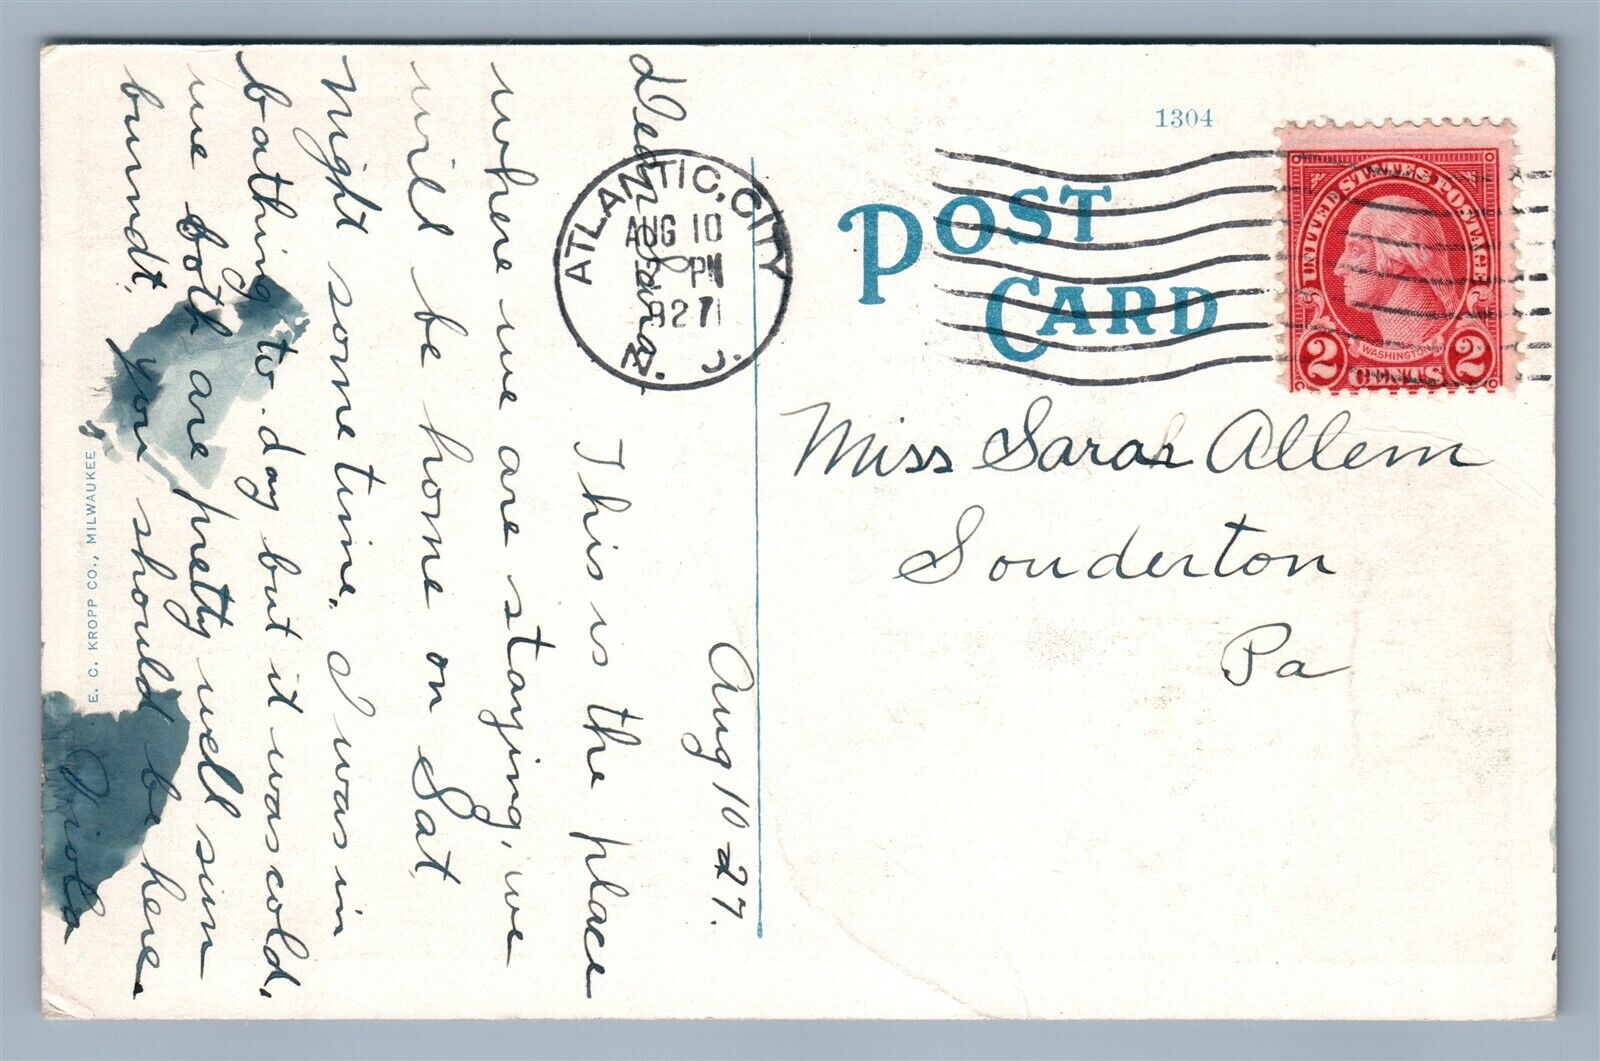 1304
POST
CARD
UNITED STATES POSTAGE
WASHINGTON
2 CENTS 2
ATLANTIC CITY
AUG 10
PM
1927
N. J.
Miss Sarah Allem
Souderton
Pa
Aug 10-27.
Dear Sara
This is the place
where we are staying, we
will be home on Sat
night some time, I was in
bathing to day but it was cold,
we both are pretty well sun
burndt, you should be here
Viola
E. C. KROPP CO., MILWAUKEE